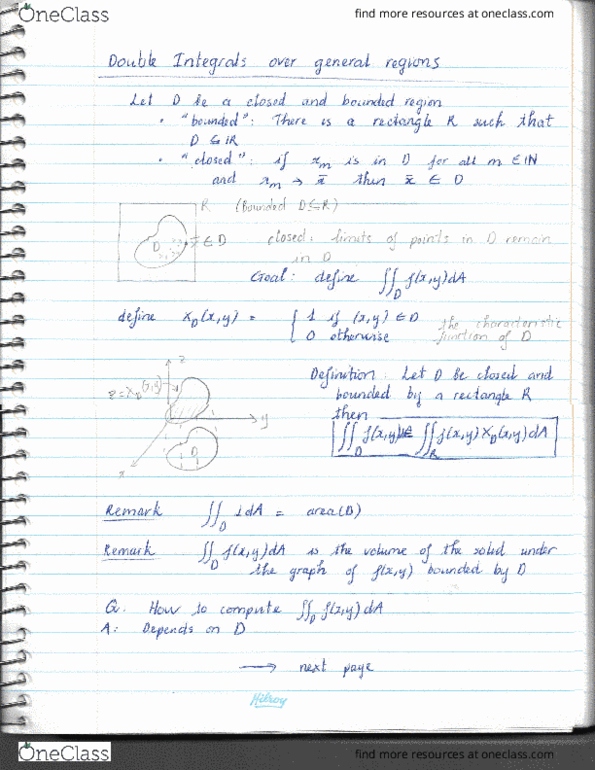 OneClass
find more resources at oneclass.com
Double Integrals over general regions
Let D be a closed and bounded region
• "bounded": There is a rectangle R such that
D ⊆ R
• "closed": if xₘ is in D for all m ∈ ℕ
and xₘ → x̄ then x̄ ∈ D
R (Bounded D⊆R)
D x̄ ∈ D closed: limits of points in D remain
in D
Goal: define ∬_D f(x,y)dA
define X_D(x,y) = { 1 if (x,y) ∈ D
0 otherwise
the characteristic
function of D
z
z = X_D(x,y)
y
x
D
Definition: Let D be closed and
bounded by a rectangle R
then
∬_D f(x,y)dA = ∬_R f(x,y) X_D(x,y)dA
Remark ∬_D 1dA = area(D)
Remark ∬_D f(x,y)dA is the volume of the solid under
the graph of f(x,y) bounded by D
Q: How to compute ∬_D f(x,y)dA
A: Depends on D
→ next page
Hilroy
OneClass
find more resources at oneclass.com